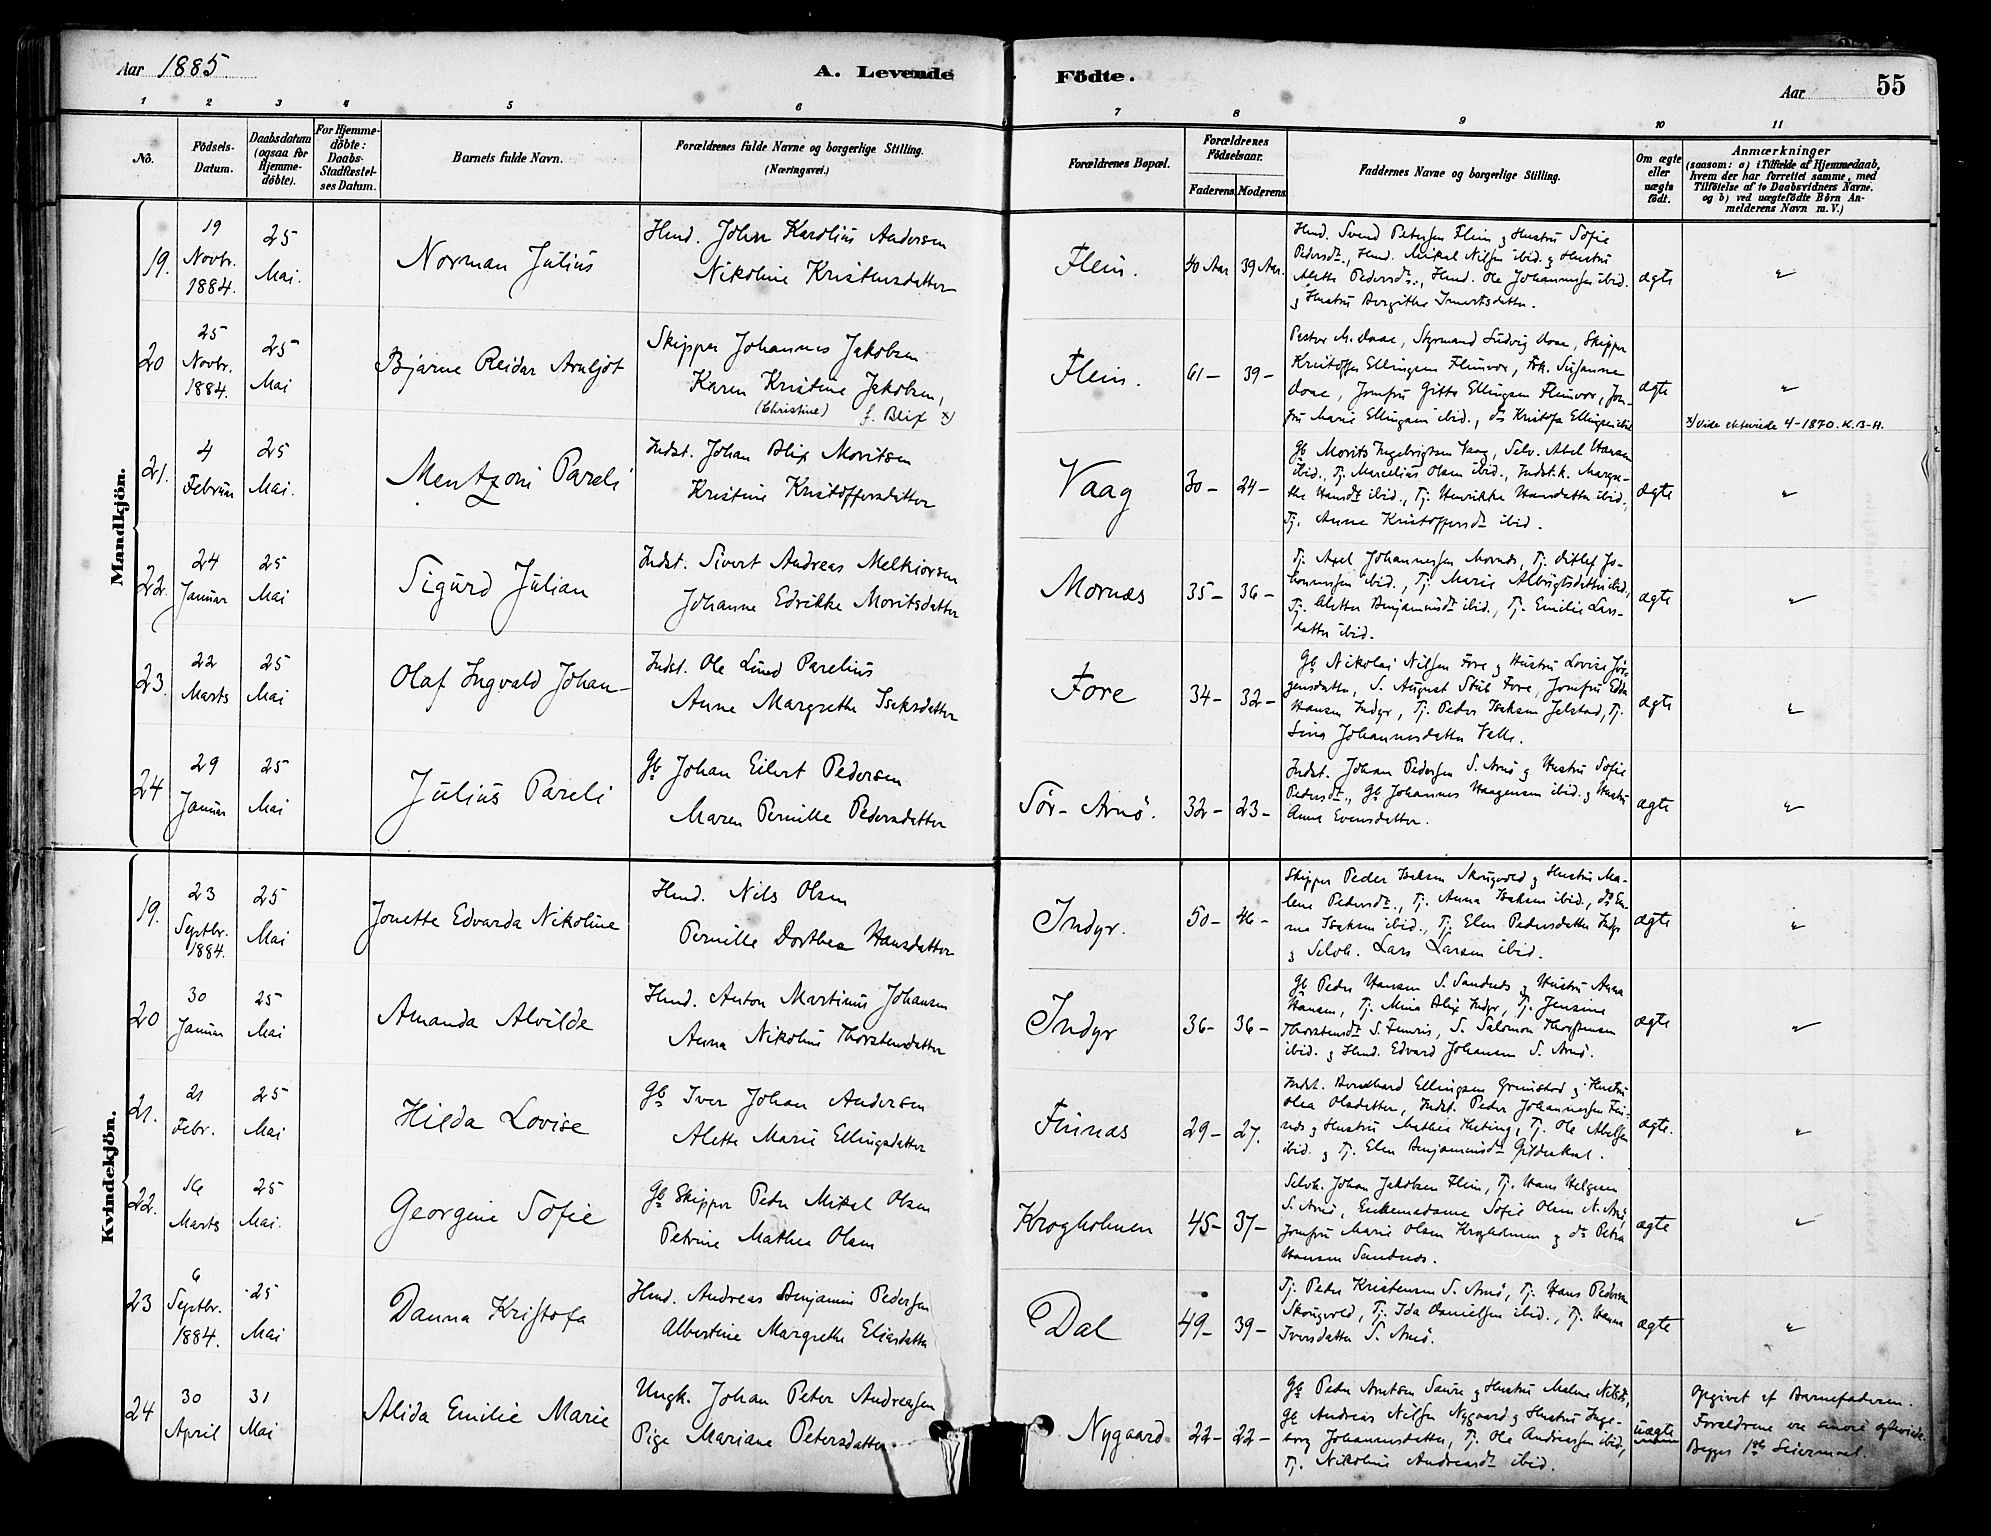 Aar 1885
A. Levende Födte.
Aar
55
1 2 3 4 5 6 7 8 9 10 11
No.
Födsels-Datum.
Daabsdatum (ogsaa for Hjemme-döbte).
For Hjemme-döbte: Daabs-Stadfæstel-ses Datum.
Barnets fulde Navn.
Forældrenes fulde Navne og borgerlige Stilling.
(Næringsvei.)
Forældrenes Bopæl.
Forældrenes Födselsaar.
Faderens. Moderens.
Faddernes Navne og borgerlige Stilling.
Om ægte eller uægte födt.
Anmærkninger
(saasom: a) i Tilfælde af Hjemmedaab,
hvem der har forrettet samme, med
Tilföielse af to Daabsvidners Navne.
og b) ved uægtefödte Börn An-
melderens Navn m. V.)
Mandkjön.
19. 19 Novbr. 1884. 25 Mai. Norman Julius
Hmd. John Karolius Andersen
Nikoline Kristensdatter
Flein. 40 Aar 39 Aar.
Hmd. Svend Petersen Flein & Hustru Sofie
Pedersdt., Hmd. Mikal Nilsen ibid. & Hustru
Aletta Pedersdt., Hmd. Ole Johannessen ibid.
& Hustru Bergithe
ægte "
20 25 Novbr. 1884. 25 Mai Bjarne Reidar Arnljot
Skipper Johannes Jakobsen
Karen Kristine Jakobsen,
(Christine) f. Blix x)
Flein. 61- 39-
Pastor M. Daae, Styrmand Ludvig Daae, Skipper
Kristoffer Ellingsen Fleinvær, Frk. Susanne
Daae, Jomfru Gitta Ellingsen Fleinvær, Jom-
fru Marie Ellingsen ibid., do Kristofa Ellingsen ibid
ægte "
x) Vide ekteviede 4-1870. K.B-A.
21. 4 Februar 25 Mai. Mentzoni Pareli
Indst. Johan Blix Moritsen
Kristine Kristoffersdatter
Vaag 30- 24-
Gb Morits Ingebrigtsen Vaag, Selv. Abel Hansen
ibid., Tj. Marcelius Olsen ibid., Indst.k. Margre-
the Hansdt ibid., Tj. Henrikke Hansdatter ibid.,
Tj. Anne Kristoffersdt ibid.
ægte "
22. 24 Januar 25 Mai Sigurd Julian
Indst. Sivert Andreas Melkiorsen
Johanne Edrikke Moritsdatter
Mornæs 35- 36-
Tj. Axel Johannessen Mornæs, Tj. Ditlef Jo-
hannessen ibid., Tj. Marie Albrigtsdatter ibid,
Tj. Aletta Benjaminsdt ibid., Tj. Emilie Lars-
datter ibid.
ægte "
23. 22 Marts 25 Mai Olaf Ingvald Johan
Indst. Ole Lund Parelius
Anne Margrethe Isaksdatter
Fore 34- 32-
Gb Nikolai Nilsen Fore & Hustru Lovise Jör-
gensdatter, S. August Stub Fore, Jomfru Edda
Hansen Indyr, Tj. Peder Isaksen Jelstad, Tj.
Lina Johannesdatter Valle.
ægte "
24 29 Januar 25 Mai Julius Pareli
Gb Johan Eilert Pedersen
Maren Pernille Pedersdatter
Sör-Arnö. 32- 23-
Indst. Johan Pedersen S. Arnö & Hustru Sofie
Pedersdt., Gb Johannes Haagensen ibid. & Hustru
Anne Evensdatter.
ægte "
Kvindekjön.
19. 23 Septbr. 1884. 25 Mai Jonette Edvarda Nikoline
Hmd. Nils Olsen
Pernille Dorthea Hansdatter
Indyr. 50- 46-
Skipper Peder Isaksen Skougvold & Hustru Ma-
lene Pedersdt., Tj. Anna Isaksen ibid., do
Isaksen ibid., Tj. Elen Pedersdatter Indyr
& Selvh. Lars Larsen ibid.
ægte "
20 30 Januar 25 Mai Amanda Alvilde
Hmd. Anton Martinus Johansen
Anna Nikoline Thorstensdatter
Indyr 36- 36-
Gb Peder Hansen S. Sandnæs & Hustru Anna
Hansen, Tj. Mina Blix Indyr, Tj. Jensine
Thorstensdt S. S. Salomon Thorstensen
ibid. & Hmd. Edvard Johansen S. Arnö.
ægte "
21. 21 Febr. 25 Mai Hilda Lovise
Gb Iver Johan Andersen
Alette Marie Ellingsdatter
Finnæs 29- 27.
Indst. Bernhard Ellingsen Grimstad & Hustru
Olea Olsdatter, Indst. Peder Johannessen Fin-
næs & Hustru Mathea Tj. Ole Abelsen
ibid. & Tj. Elen Benjaminsdt Gildeskaal.
ægte. "
22. 16 Marts 25 Mai. Georgine Sofie
Gb Skipper Peder Mikal Olsen
Petrine Mathea Olsen
Krogholmen 45- 37-
Selvh. Johan Jakobsen Flein, Tj. Hans Helgesen
S. Arnö, Enkemadame Sofie Olsen N. Arnö,
Jomfru Marie Olsen Krogholmen & do Petra
Hansen Sandnæs.
ægte "
23 6 Septbr. 1884. 25 Mai Danna Kristofa
Hmd. Andreas Benjamin Pedersen
Albertine Margrethe Eliasdatter
Dal 49- 39-
Tj. Peder Kristensen S. Arnö, Tj. Hans Pedersen
Skougvold, Tj. Ida Danielsen ibid., Tj. Hanna
Iversdatter S. Arnö.
ægte "
24 30 April 31 Mai Alida Emilie Marie
Ungk. Johan Peter Andreassen
Pige Mariane Petersdatter
Nygaard 22- 22-
Gb Peder Arntsen Saure & Hustru Malene Nilsdt,
Gb Andreas Nilsen Nygaard & Hustru Inge-
borg Johannesdatter, Tj. Ole Andreassen ibid,
Tj. Nikoline Andreasdt ibid.
uægte
Opgivet af Barnefaderen.
Forældrene ere senere ægteviede.
Begges 1ste Leiermaal.